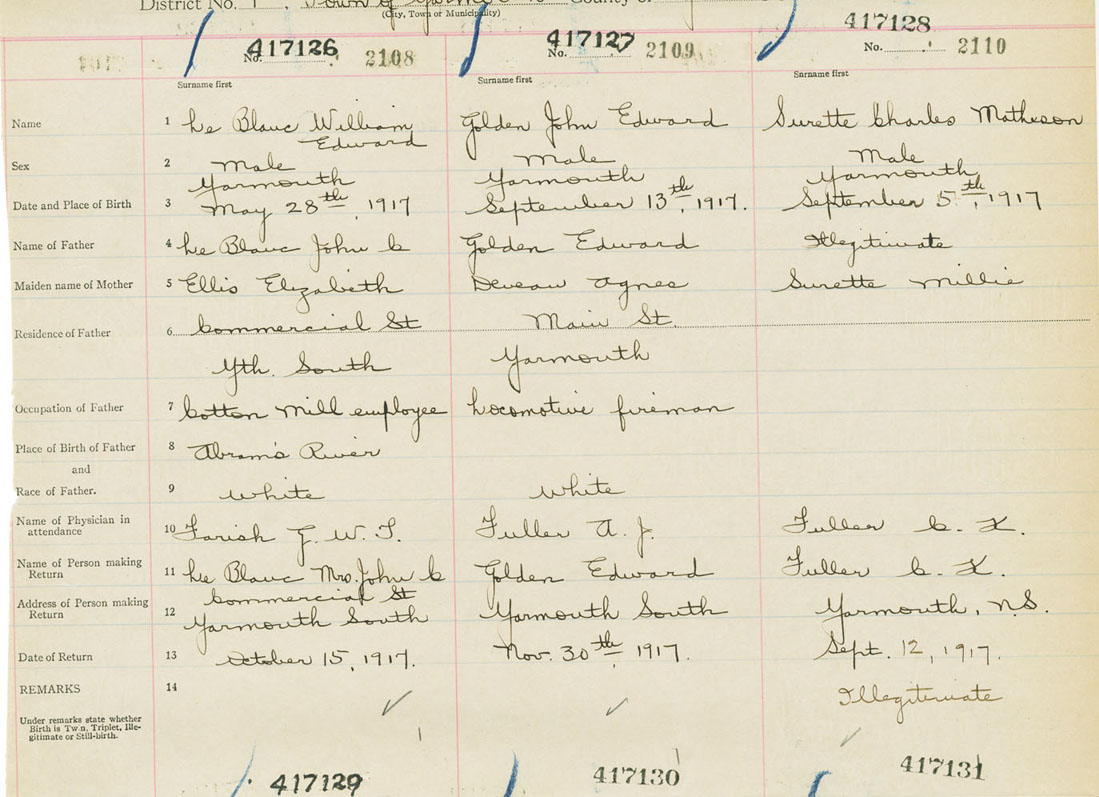 District No. 1, Town of Yarmouth County of
(City, Town or Municipality)
417126 417127 417128
No. 2108 No. 2109 No. 2110
Surname first Surname first Surname first
Name 1 Le Blanc William Edward Golden John Edward Surette Charles Matheson
Sex 2 Male Male Male
Yarmouth Yarmouth Yarmouth
Date and Place of Birth 3 May 28th, 1917 September 13th, 1917. September 5th, 1917
Name of Father 4 Le Blanc John C Golden Edward Illegitimate
Maiden name of Mother 5 Ellis Elizabeth Deveau Agnes Surette Millie
Residence of Father 6 Commercial St Main St.
Yth. South Yarmouth
Occupation of Father 7 Cotton Mill employee Locomotive fireman
Place of Birth of Father 8 Abram's River
and
Race of Father. 9 White White
Name of Physician in
attendance 10 Farish G. W. T. Fuller A. J. Fuller C. K.
Name of Person making
Return 11 Le Blanc Mrs. John C Golden Edward Fuller C. K.
Commercial St
Address of Person making
Return 12 Yarmouth South Yarmouth South Yarmouth, N.S.
Date of Return 13 October 15, 1917. Nov. 30th, 1917. Sept. 12, 1917.
REMARKS 14 Illegitimate
Under remarks state whether
Birth is Twin, Triplet, Ille-
gitimate or Still-birth.
417129 417130 417131